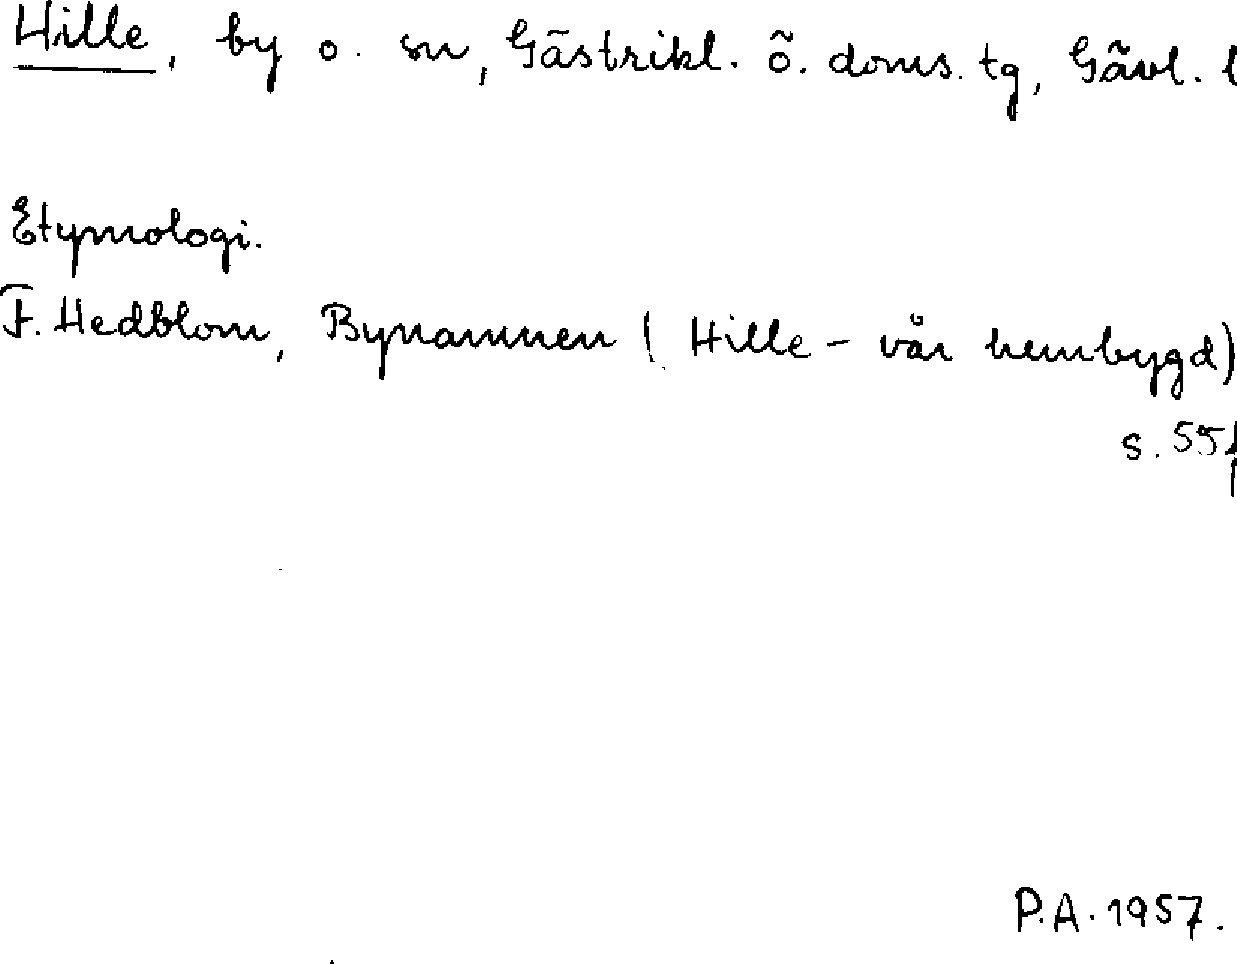 Hille, by o. sn, Gästrikl. ö. doms. tg, Gävl. l
Etymologi.
F. Hedblom, Bynamnen (Hille - vår hembygd)
s. 55f
P.A. 1957.